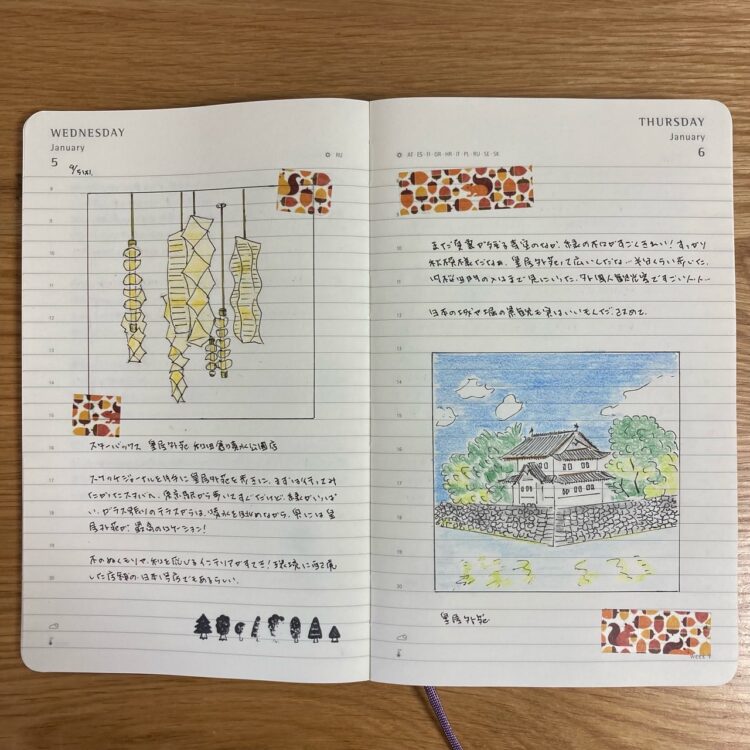 WEDNESDAY
January
5
9/5(火)
RU
9
スターバックス 皇居外苑 和田倉噴水公園店
15
16
17
スケッチジャーナルを片手に皇居外苑を歩きに。まずは行ってみ
たかったスタバへ。東京駅から歩いてすぐだけど、緑がいっぱ
い。ガラス張りのテラスからは、噴水を眺めながら、奥には皇
18
居外苑が。最高のロケーション!
19
木のぬくもりや、和を感じるインテリアがすてき!環境に配慮
した店舗の日本1号店でもあるらしい。
20
THURSDAY
January
6
AT·ES·FI·GR·HR·IT·PL·RU·SE·SK
10
まだ 残る のなか、緑の がすごくきれい!すっかり
11
だなぁ。皇居外苑って広いんだなぁ… くらい歩いた。
まで見にいった。外国人観光客ですごい人…
12
日本の城や堀の景観も実はいいもんだ
13
14
15
16
17
18
19
20
皇居外苑
WEEK 1